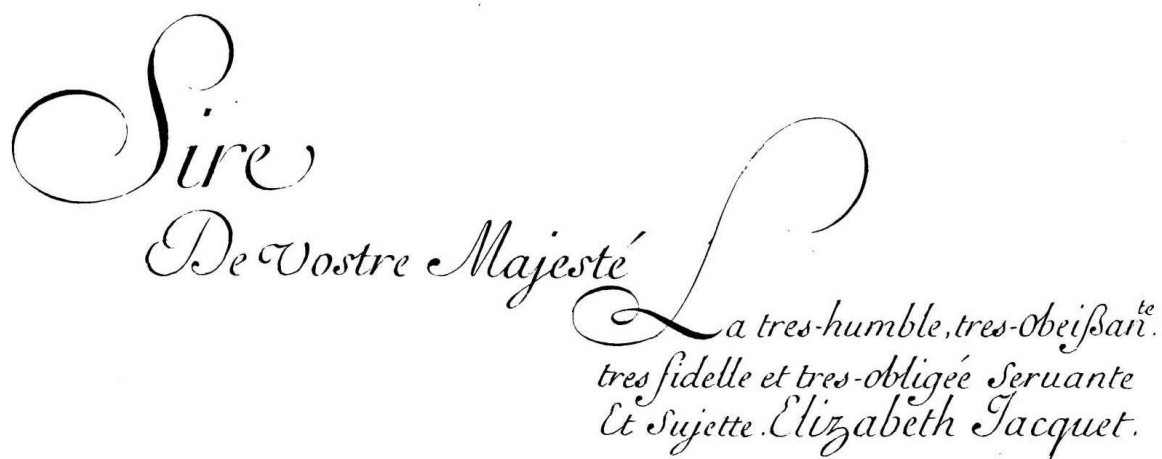 Sire
De Vostre Majesté
La tres-humble, tres-obeißan.te
tres fidelle et tres-obligée Seruante
Et Sujette. Elizabeth Jacquet.